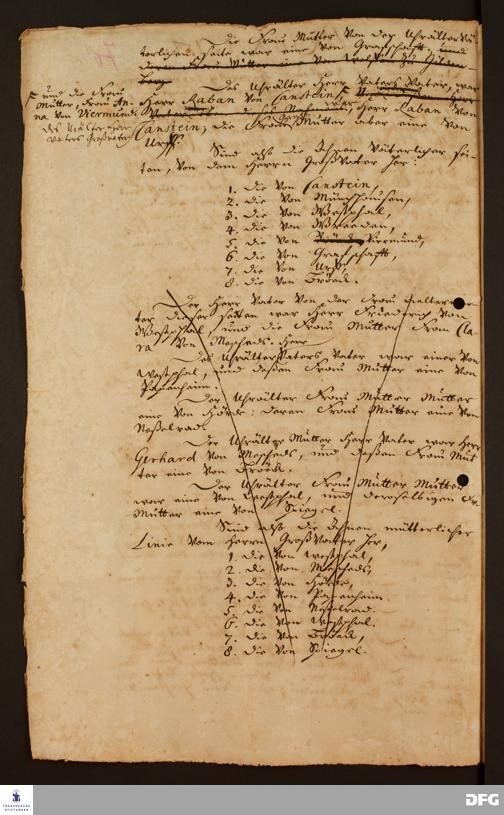 Die Frau Mutter Von der Uhrälter Vä-
terlichen seite war eine Von Grafschafft, und
Des Uhrälter Herr Vaters Vater, war
und die Frau
Mutter, Frau An-
na Von Viermünd.
Herr Raban Von Canstein
Herr Raban Von
Canstein; die Mutter aber eine Von
Urff.
Sind also die Ahnen Väterlicher sei-
ten, Von dem Herrn GroßVater her:
1. die Von Canstein,
2. die Von Münchhausen,
3. die Von Westphal,
4. die Von
5. die Von Viermünd,
6. die Von Grafschafft,
7. die Von Urff,
8. die Von
Der Herr Vater Von der Frau
ter dieser seiten war Herr Friedrich Von
Westphal, und die Frau Mutter Frau Cla-
ra Von Meschede.
Des Uhrälter Vaters Vater war einer Von
Westphal, und deßen Frau Mutter eine Von
Papenheim.
Der Uhrälter Frau Mutter Mutter
eine Von Hörde: deren Frau Mutter eine Von
Neßelrad.
Der Uhrälter Mutter Herr Vater war Herr
Gerhard Von Meschede, und deßen Frau Mut-
ter eine Von
Der Uhrälter Frau Mutter Mutter
war eine Von Westphal, und deroselbigen Fr.
Mutter eine Von Spiegel.
Sind also die Ahnen mütterlicher
Linie Vom Herrn GroßVater her,
1. die Von Westphal,
2. die Von Meschede,
3. die Von Hörde,
4. die Von Papenheim.
5. die Von Neßelrad.
6. die Von Westphal.
7. die Von
8. die Von Spiegel.
FRANCKESCHE
STIFTUNGEN
DFG